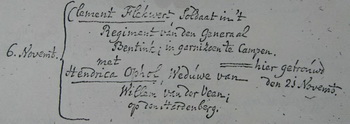 Clement Flekwert Soldaat in't
Regiment van den Generaal
Bentink, in garnizoen te Campen.
6. Novemb. met
Hendrica Ophof, Weduwe van
Willem van der Veen,
op den Hardenberg.
hier getrouwd
den 21 Novemb.